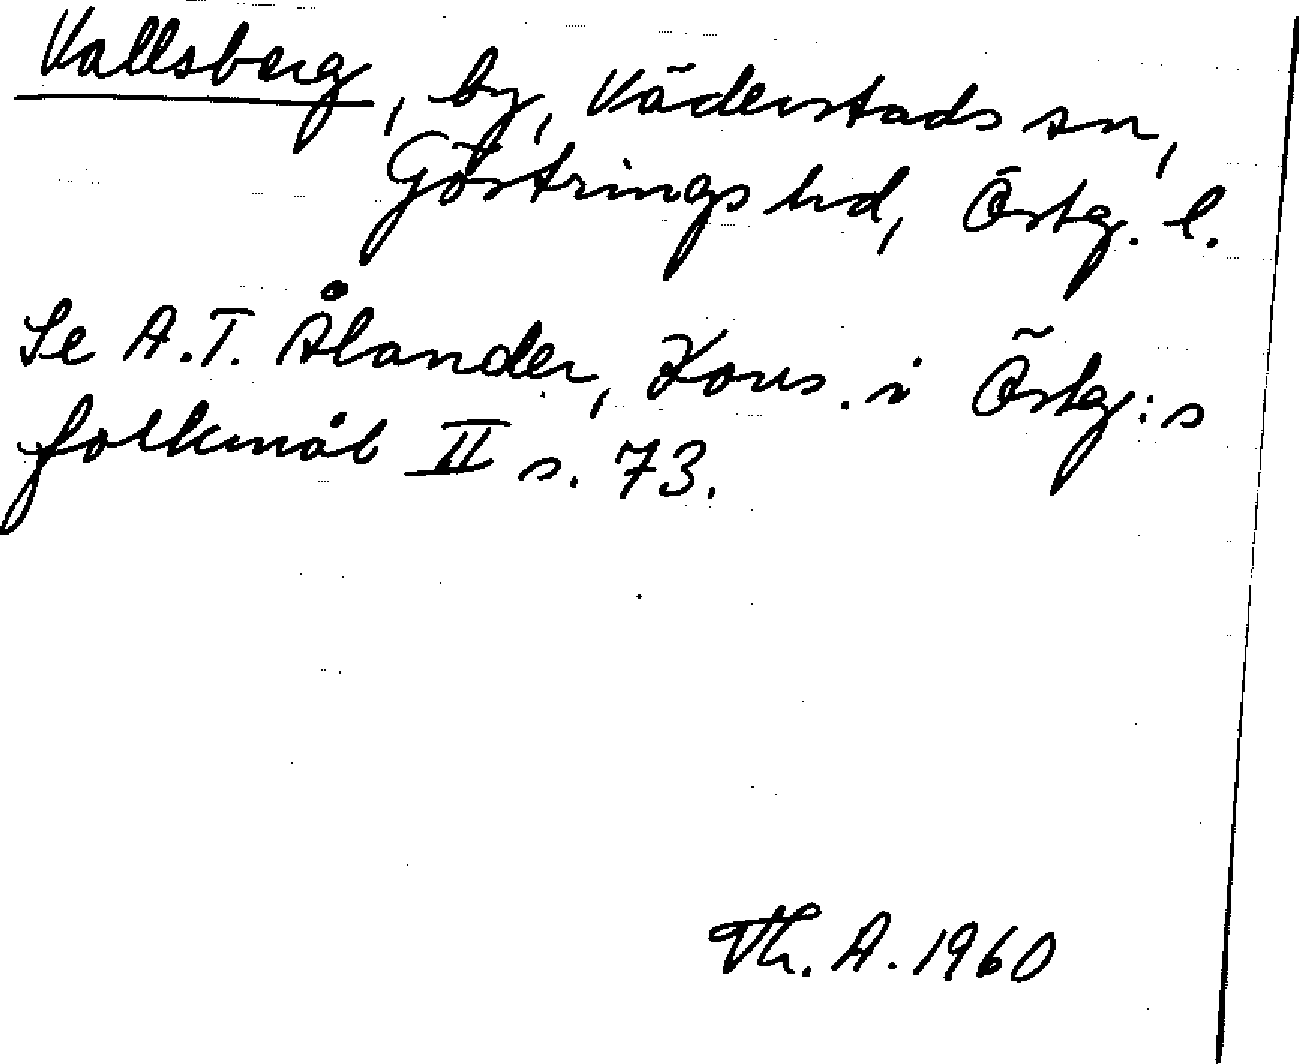 Vallsberg, by, Väderstads sn,
Göstrings hd, Östg. l.
Se A.T. Ålander, Kons. i Östg:s
folkmål II s. 73.
Th. A. 1960